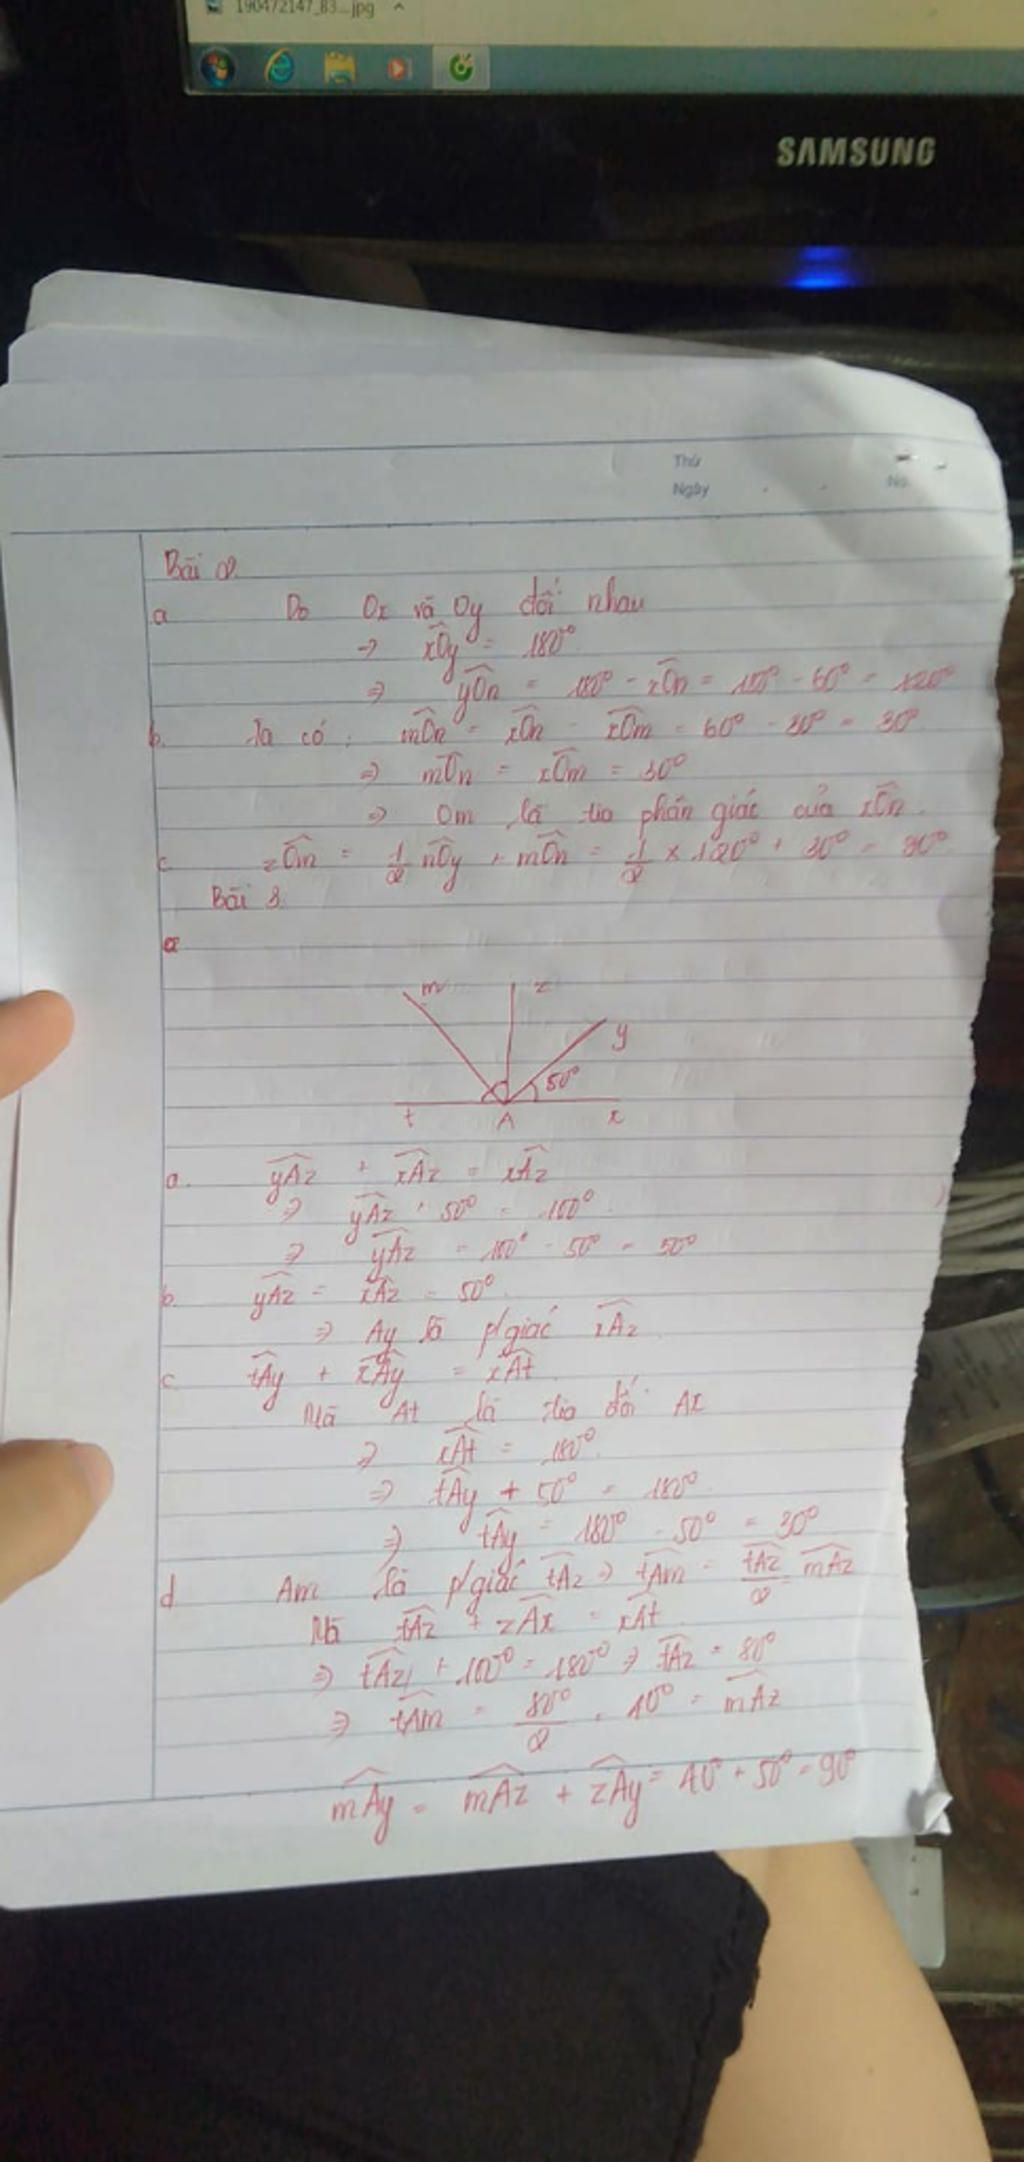 190472147_83...jpg
SAMSUNG
Thứ
Ngày
No.
Bài 2
a Do Ox và Oy đối nhau
→ xOy = 180°
⇒ yOn = 180° - xOn = 180° - 60° = 120°
b. Ta có: mOn = xOn - xOm = 60° - 30° = 30°
⇒ mOn = xOm = 30°
⇒ Om là tia phân giác của xOn.
c. zOm = 1/2 nOy + mOn = 1/2 × 120° + 30° = 90°
Bài 3.
a
m z
y
50°
t A x
a. yAz + xAz = xAz
⇒ yAz + 50° = 100°
⇒ yAz = 100° - 50° = 50°
b. yAz = xAz = 50°
⇒ Ay là p/giác xAz
c. tAy + xAy = xAt
Mà At là tia đối Ax
⇒ xAt = 180°
⇒ tAy + 50° = 180°
⇒ tAy = 180° - 50° = 30°
d Am là p/giác tAz ⇒ tAm = tAz/2 = mAz
Mà tAz + zAx = xAt
⇒ tAz + 100° = 180° ⇒ tAz = 80°
⇒ tAm = 80°/2 = 40° = mAz
mAy = mAz + zAy = 40° + 50° = 90°